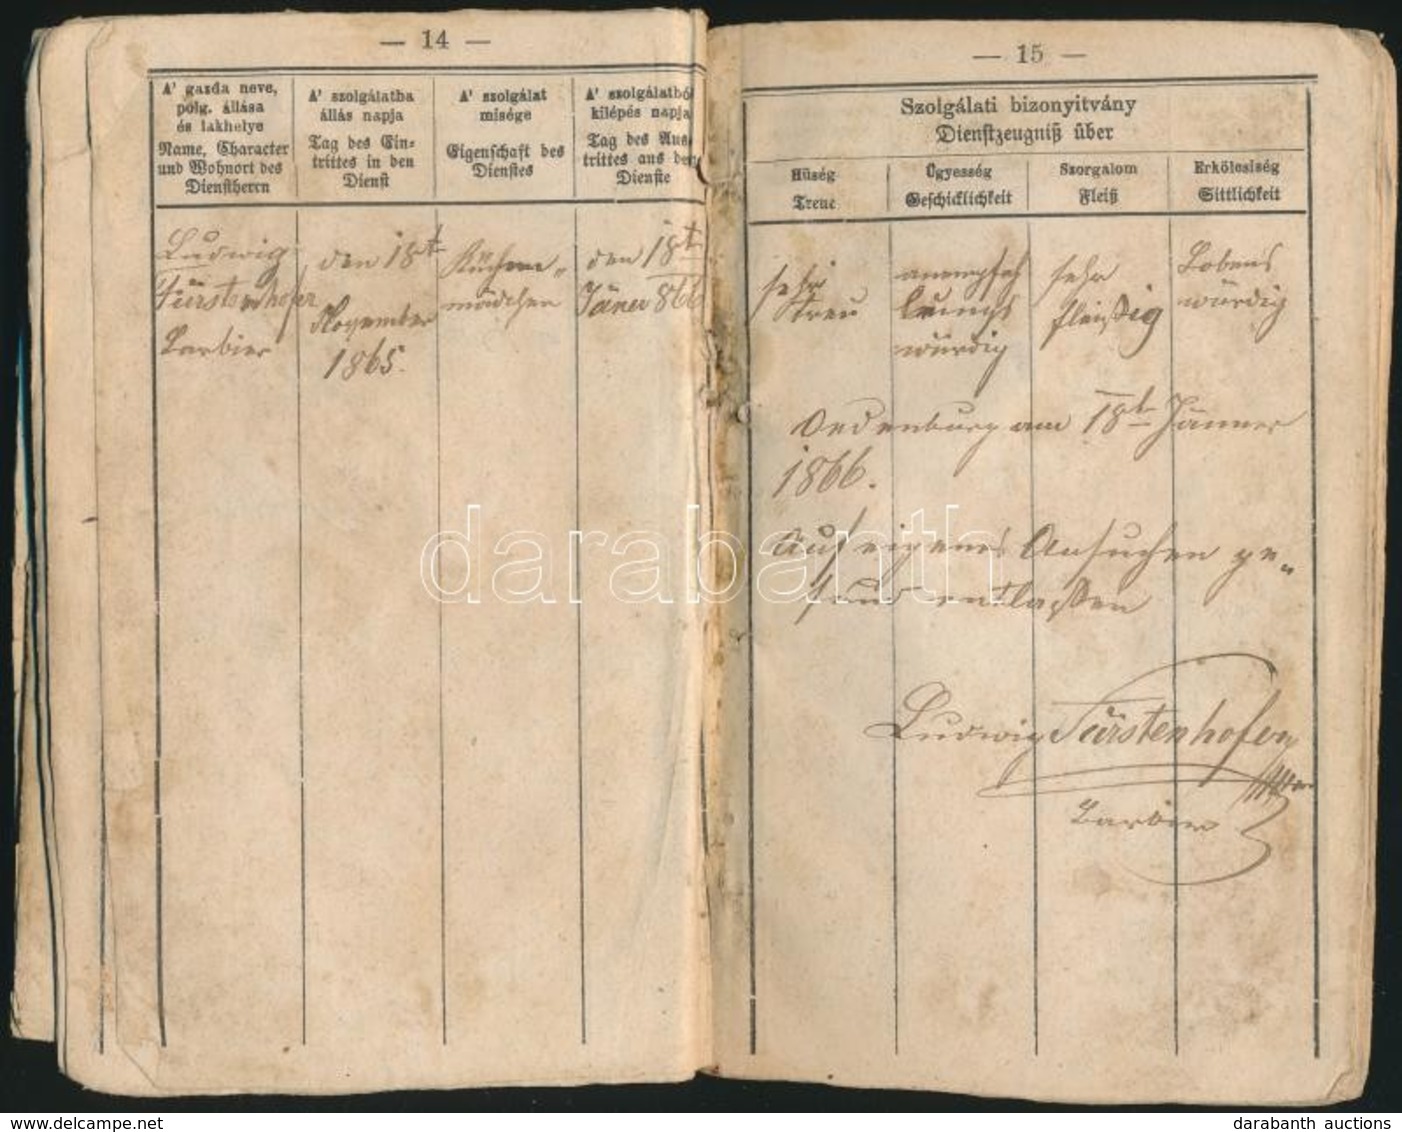 — 14 —
A' gazda neve,
polg. állása
és lakhelye
Name, Character
und Wohnort des
Dienstherrn
A' szolgálatba
állás napja
Tag des Ein-
trittes in den
Dienst
A' szolgálat
misége
Eigenschaft des
Dienstes
A' szolgálatból
kilépés napja
Tag des Aus-
trittes aus dem
Dienste
Ludwig
Fürstenhofer
Barbier
den 18t
November
1865.
Küchen„
mädchen
den 18t
Jäner 866
— 15 —
Szolgálati bizonyitvány
Dienstzeugniß über
Hüség
Treue
Ügyesség
Geschicklichkeit
Szorgalom
Fleiß
Erkölcsiség
Sittlichkeit
sehr
treu
anempfeh
lungs
würdig
sehr
fleißig
Lobens
würdig
Oedenburg am 18t Jänner
1866.
Auf eigenes Ansuchen ge„
sund entlaßen
Ludwig Fürstenhofer
Barbier
darabanth
darabanth auctions